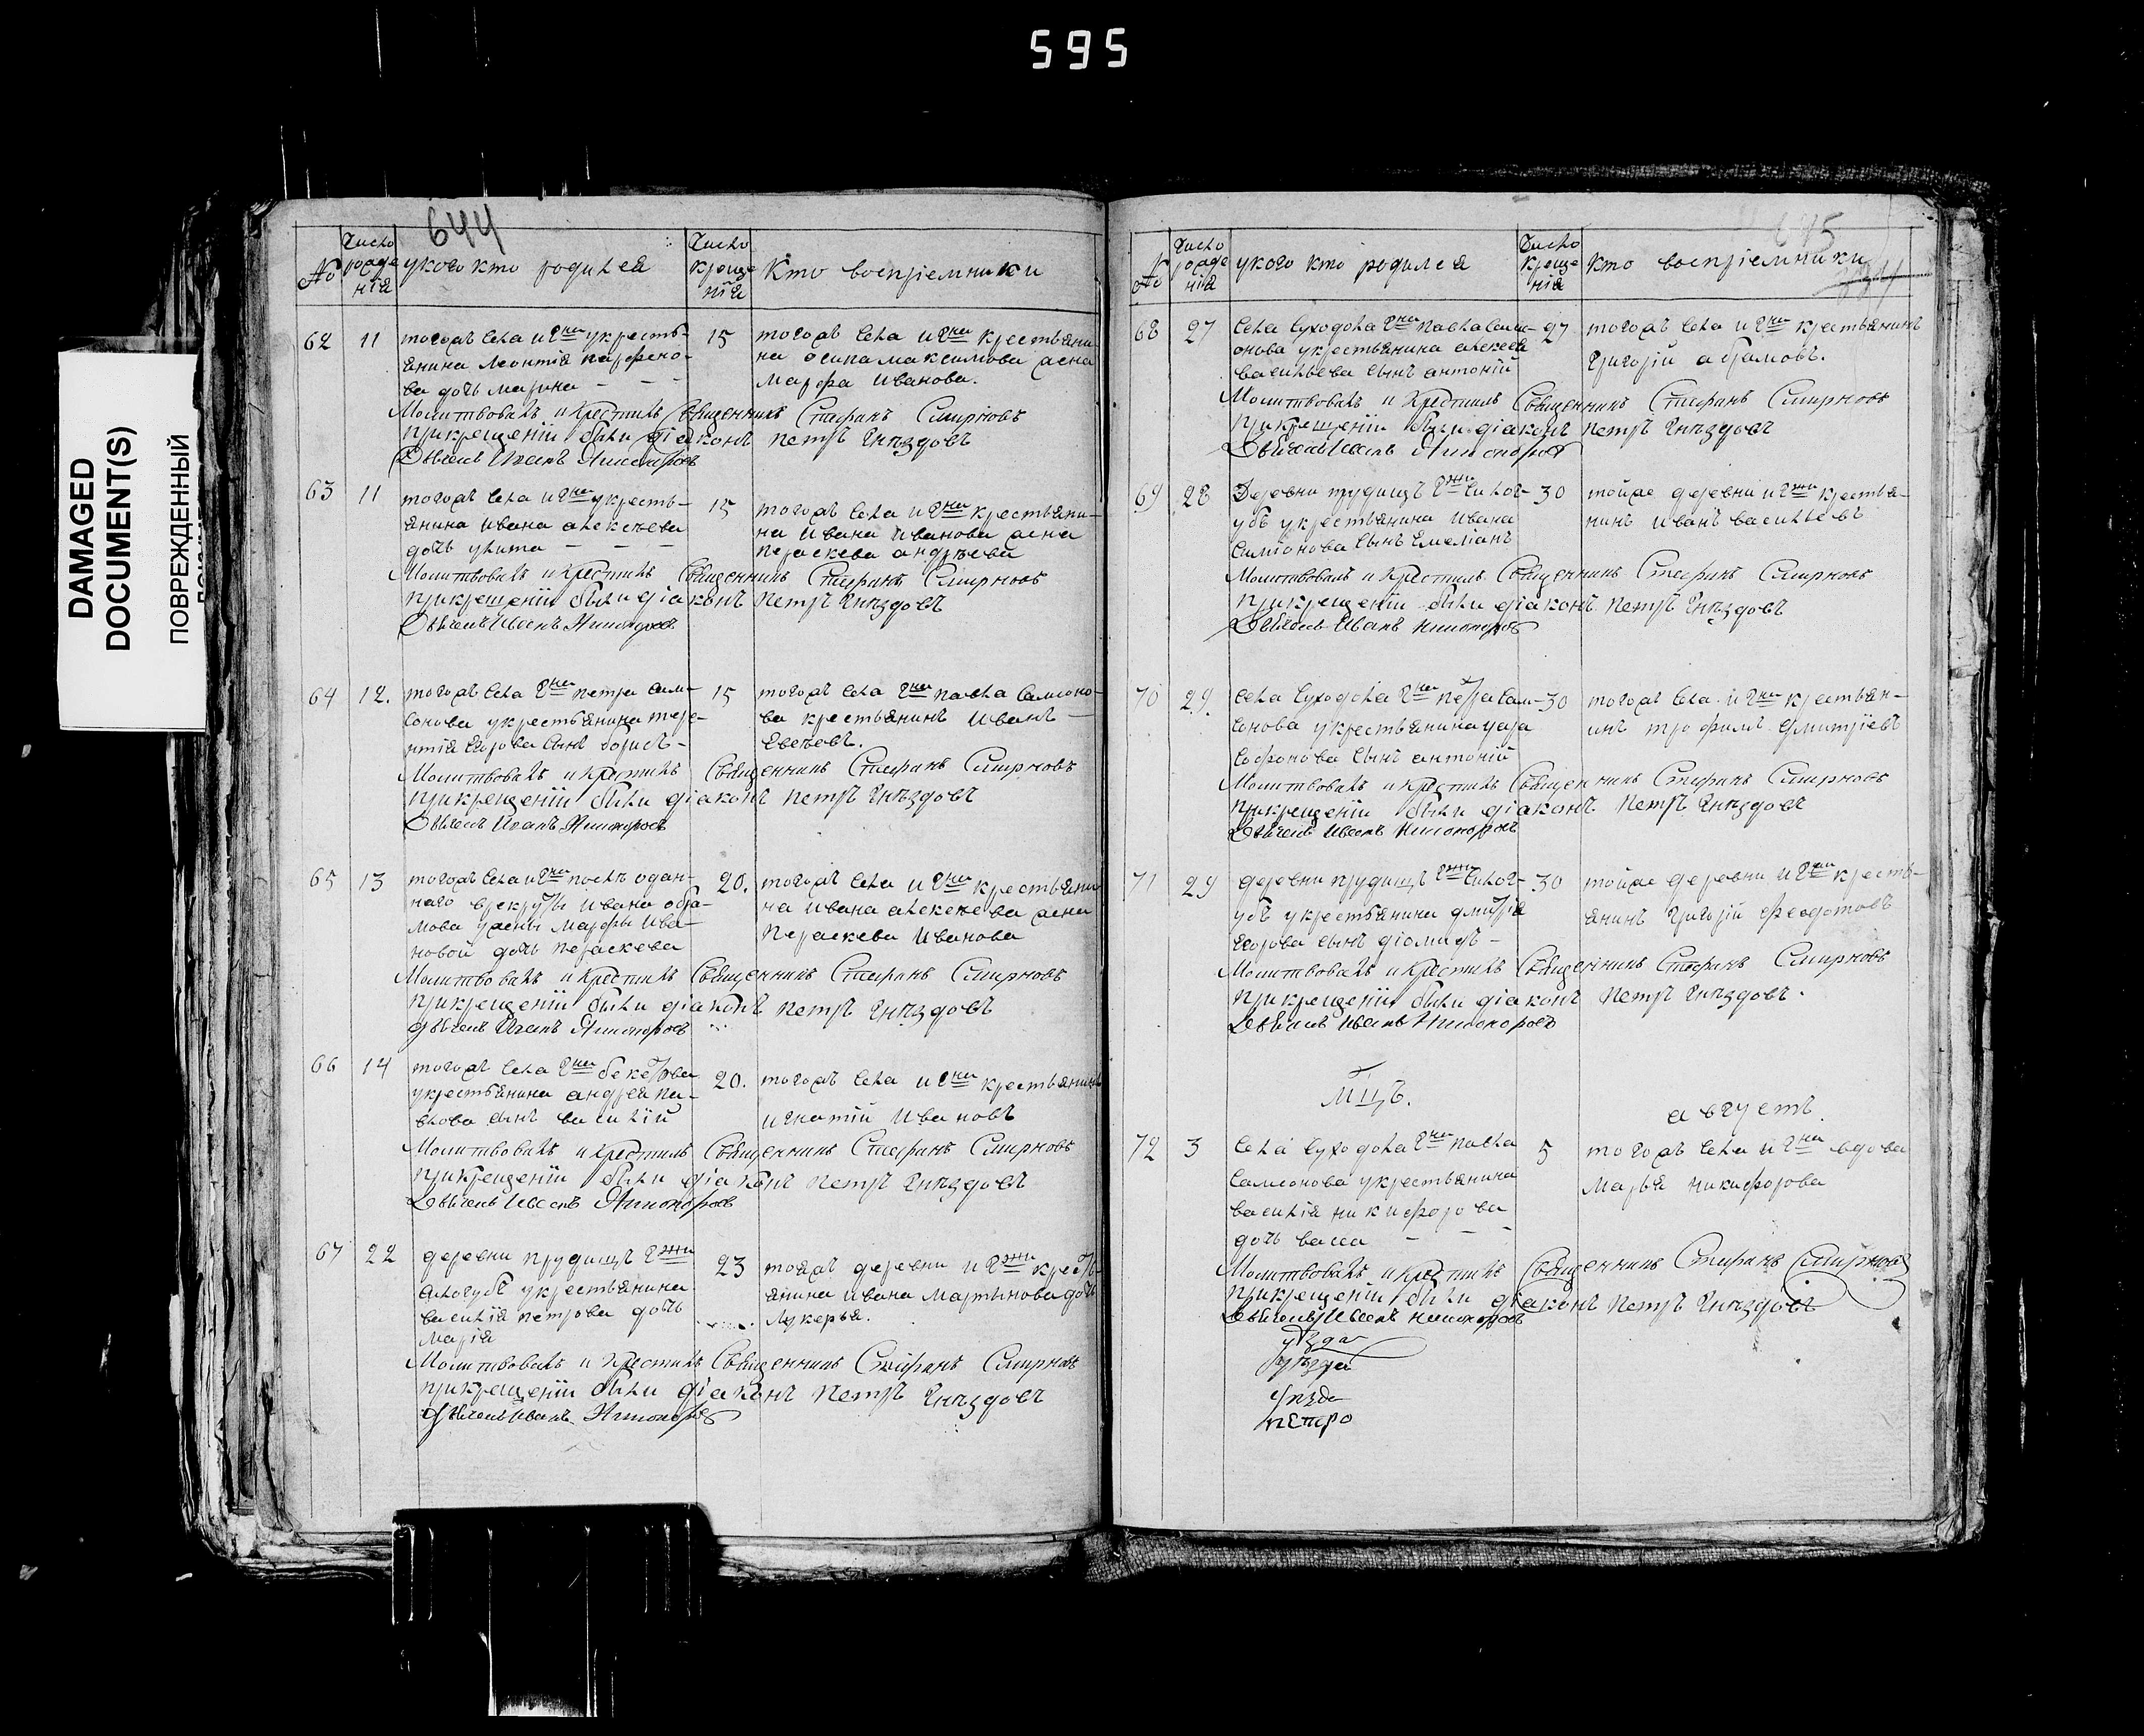 595
DAMAGED
DOCUMENT(S)
ПОВРЕЖДЕННЫЙ
644
№
Число рожде нія
укого кто родился
Число креще нія
Кто воспріемники
62 11
тогожъ села и Гжи укресть-
янина Леонтія парфено-
ва дочь марина - - -
15
тогожъ села и Гжи крестьяни
на осипа максимова жена
марфа иванова.
Молитвовалъ и Крестилъ Священникъ Стефанъ Смирновъ
прикрещеніи были діаконъ петръ Гнѣздовъ
Дьячекъ Иванъ
63 11
тогожъ села и Гжи укресть-
янина ивана алексѣева
дочь улита - - -
15
тогожъ села и Гжи крестьяни-
на ивана иванова жена
пераскева андрѣева
Молитвовалъ и Крестилъ Священникъ Стефанъ Смирновъ
прикрещеніи были діаконъ петръ Гнѣздовъ
Дьячекъ Иванъ
64 12.
тогожъ села Гжи петра сам-
сонова укрестьянина тере-
нтія егорова сынъ борисъ-
15
тогожъ села Гжи павла самсоно-
ва крестьянинъ иванъ -
евсѣевъ.
Молитвовалъ и Крестилъ Священникъ Стефанъ Смирновъ
прикрещеніи были діаконъ петръ Гнѣздовъ
Дьячекъ Иванъ
65 13
тогожъ села и Гжи послѣ одан-
наго врекруты ивана обра-
мова ужены марфы ива-
новой дочь пераскева
20.
тогожъ села и Гжи крестьяни
на ивана алексѣева жена
пераскева иванова
Молитвовалъ и Крестилъ Священникъ Стефанъ Смирновъ
прикрещеніи были діаконъ петръ Гнѣздовъ
дьячекъ Иванъ
66 14
тогожъ села Гжи бекетова
укрестьянина андрея па-
влова сынъ василій
20.
тогожъ села и Гжи крестьянинъ
игнатій ивановъ
Молитвовалъ и Крестилъ Священникъ Стефанъ Смирновъ
прикрещеніи были діаконъ петръ Гнѣздовъ
Дьячекъ Иванъ
67 22
деревни прудищъ Гжи
укрестьянина
василія петрова дочь
марія
23
тояжъ деревни и Гжи кресть-
янина ивана мартынова дочь
лукерья.
Молитвовалъ и Крестилъ Священникъ Стефанъ Смирновъ
прикрещеніи были діаконъ петръ Гнѣздовъ
дьячекъ Иванъ
645
№
Число рожде нія
укого кто родился
Число креще нія
Кто воспріемники
68 27
села суходола Гжи павла самс-
онова укрестьянина алексея
васильева сынъ антоній
27
тогожъ села и Гжи крестьянинъ
григорій абрамовъ.
Молитвовалъ и Крестилъ Священникъ Стефанъ Смирновъ
прикрещеніи были діаконъ петръ Гнѣздовъ
Дьячекъ Иванъ
69 28
Деревни прудищъ
укрестьянина ивана
симіонова сынъ емеліанъ
30
тойже деревни и Гжи крестья-
нинъ иванъ васильевъ
Молитвовалъ и Крестилъ Священникъ Стефанъ Смирновъ
прикрещеніи были діаконъ петръ Гнѣздовъ
Дьячекъ Иванъ
70 29.
села суходола Гжи петра сам-
сонова укрестьянина
софронова сынъ антоній
30
тогожъ села и Гжи крестьян-
инъ трофимъ дмитріевъ
Молитвовалъ и Крестилъ Священникъ Стефанъ Смирновъ
прикрещеніи были діаконъ петръ Гнѣздовъ
Дьячекъ Иванъ
71 29
деревни прудищъ
укрестьянина дмитрія
егорова сынъ діомидъ -
30
тойже деревни и Гжи кресть-
янинъ григорій феодотовъ
Молитвовалъ и Крестилъ Священникъ Стефанъ Смирновъ
прикрещеніи были діаконъ петръ Гнѣздовъ.
Дьячекъ Иванъ
мцъ. августъ.
72 3
села суходола Гжи павла
самсонова укрестьянина
василія никифорова
дочь васса - - -
5
тогожъ села и Гжи вдова
марья никифорова
Молитвовалъ и Крестилъ Священникъ Стефанъ Смирновъ
прикрещеніи были діаконъ петръ Гнѣздовъ
Дьячекъ Иванъ
уѣзда